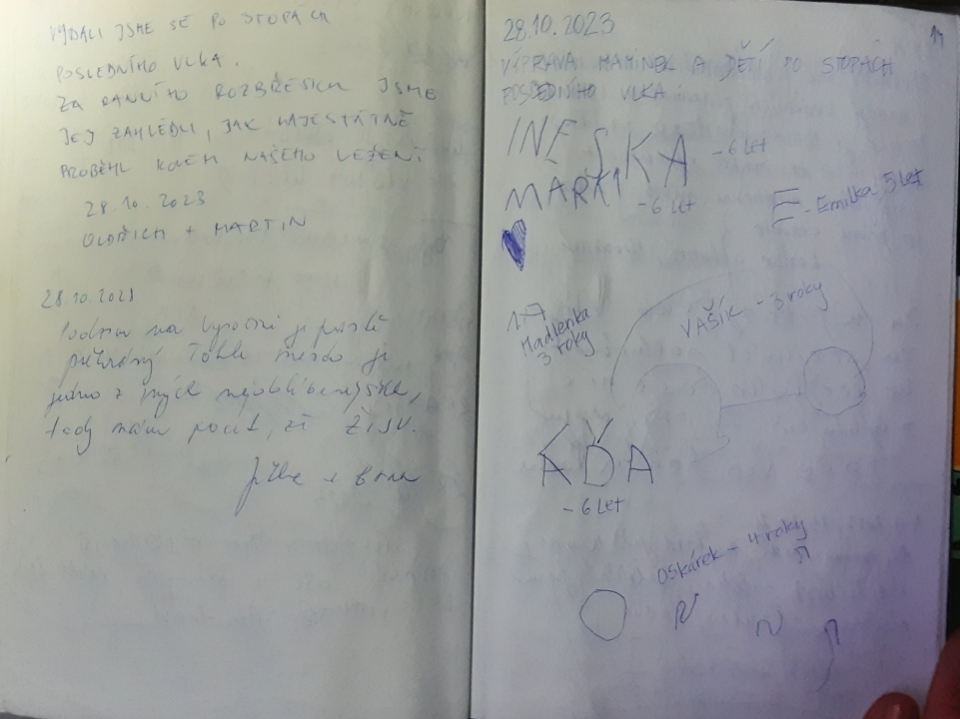 VYDALI JSME SE PO STOPÁCH
POSLEDNÍHO VLKA.
ZA RANNÍHO ROZBŘESKU JSME
JEJ ZAHLÉDLI, JAK MAJESTÁTNĚ
PROBĚHL KOLEM NAŠEHO LEŽENÍ
28.10.2023
OLDŘICH + MARTIN
28.10.2023
Podzim na Vysočině je prostě
Tohle místo je
jedno z mých nejoblíbenějších,
tady mám pocit, že ŽIJU.
14
28.10.2023
VÝPRAVA MAMINEK A DĚTÍ PO STOPÁCH
POSLEDNÍHO VLKA
INEŠKA - 6 let
MARKI - 6 LET
E - Emilka 5 let
Madlenka
3 roky
VAŠÍK - 3 roky
ÁĎA
- 6 let
Oskárek - 4 roky